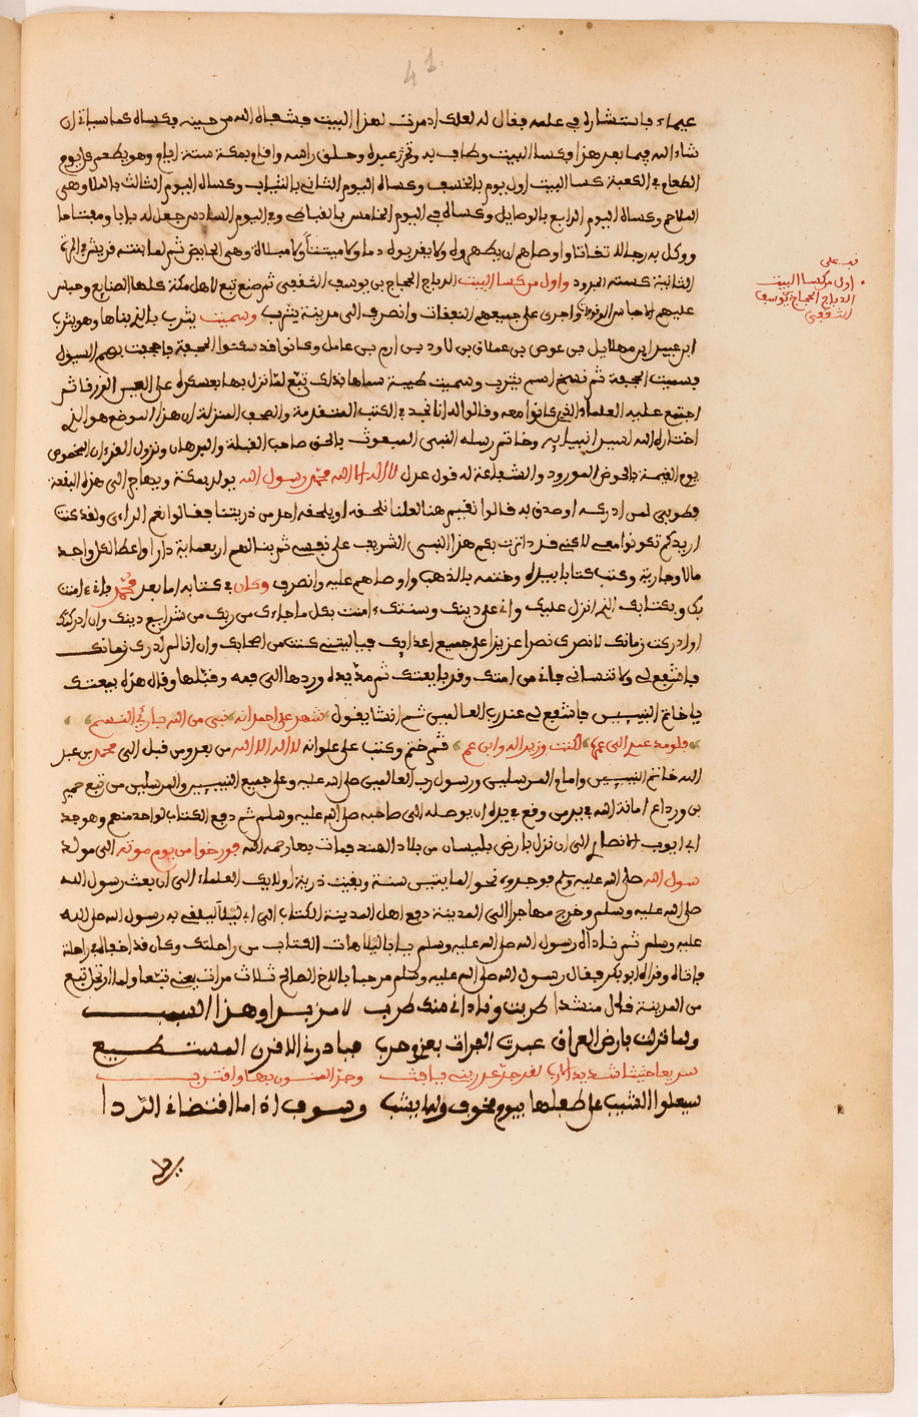 41
عمياء فاستشاره في علمه فقال له لعلك اردت لهذا البيت فشفاه الله من حينه فكساه كما سياتي ان
شاء الله فيما بعد هذا فكسا البيت وطاف به ونحر عبده وحلق راسه واقام بمكة ستة ايام وهو يطعم كل يوم
الطعام في الكعبة كسا البيت اول يوم بالخسف وكساه اليوم الثاني بالثياب وكساه اليوم الثالث بالملا وهي
الملاحم وكساه اليوم الرابع بالوصايل وكساه في اليوم الخامس بالقباطي وفي اليوم السادس جعل له بابا ومفتاحا
ووكل به رجالا ثقاتا واوصاهم ان يطهروه ولا يقربوه دما ولا ميتنا ولا ميلاة وهي المحايض ثم لما بنته قريش في المرة
الثانية كسته البرود واول من كسا البيت الديباج الحجاج بن يوسف الثقفي ثم صنع تبع لاهل مكة كلها الصنايع وحبس
عليهم الاحباس الموفوتة واجرى على جميعهم النفقات وانصرف الى مدينة يثرب وسميت يثرب بالذي بناها وهو يثرب
ابن عبيد ابن مهلاييل بن عوص بن عملاق بن لاود بن ارم بن عامل وكانوا قد سكنوا الجحفة فاجحفت بهم السيول
فسميت الجحفة ثم نسخ اسم يثرب وسميت طيبة سماها بذلك تبع لما نزل بها بعسكره على العين الزرقا ثم
اجتمع عليه العلماء الذين كانوا معه وقالوا له انا نجد في الكتب المتقدمة والصحف المنزلة ان هذا الموضع هو الذي
اختاره الله لسيد انبيايه وخاتم رسله النبي المبعوث بالحق صاحب القبلة والبرهان ونزول القرءان المخصوص
يوم القيمة بالحوض المورود والشفاعة له قول عدل لا اله الا الله محمد رسول الله يولد بمكة ويهاجر الى هذه البقعة
فطوبى لمن ادركه او صدق به قالوا نقيم هنا لعلنا نلحقه او يلحقه احد من ذريتنا فقالوا نعم الراي ولقد كنت
اريدكم تكونوا معي لاكني قد اثرت بكم هذا النبي الشريف على نفسي ثم بنا لهم اربعماية دارا واعطا لكل واحد
مالا وجارية وكتب كتابا بيده وختمه بالذهب واوصاهم عليه وانصرف وكان في كتابه اما بعد محمد فاني ءامنت
بك وبكتابك الذي انزل عليك واني على دينك وسنتك ءامنت بكل ما جاءك من ربك من شرايع دينك وان ادركتك
او ادركت زمانك لانصرك نصرا عزيزا على جميع اعدايك فيا ليتني كنت من اصحابك وان انا لم ادرك زمانك
فاشفع لي ولا تنساني فاني من امتك وقد بايعتك ثم مد يده وردها الى فمه وقبلها وقال هذه بيعتك
يا خاتم النبيين فاشفع لي عند رب العالمين ثم انشا يقول شهدت على احمد انه نبي من الله باري النسم
فلو مد عمري الى عمره لكنت وزيرا له وابن عم ثم ختم وكتب على علوانه لا اله الا الله من بعد ومن قبل الى محمد بن عبد
الله خاتم النبيين وامام المرسلين ورسول رب العالمين صلى الله عليه وعلى جميع النبيين والمرسلين من تبع حمير
بن ورداع امانة الله في يد من وقع في يده ان يوصله الى صاحبه صلى الله عليه وسلم ثم دفع الكتاب لواحد منهم وهو جد
ابي ايوب الانصاري الى ان نزل بارض بليسان من بلاد الهند فمات بها رحمه الله فورخوا من يوم موته الى مولد
سول الله صلى الله عليه وسلم فوجدوه نحو المايتين سنة وبقيت ذرية اولايك العلماء الى ان بعث رسول الله
صلى الله عليه وسلم وخرج مهاجرا الى المدينة دفع اهل المدينة الكتاب الى ابي ليلا ليلقى به رسول الله صلى الله
عليه وسلم ثم ناداه رسول الله صلى الله عليه وسلم يا ابا ليلا هات الكتاب من راحلتك وكان قد اخفاه في راحلة
فاتاه وقراه ابو بكر فقال رسول الله صلى الله عليه وسلم مرحبا بالاخ الصالح ثلاث مرات يعني تبعا ولما ارتحل تبع
من المدينة قال منشدا طربت وناداني منك طرب لامر بدا وهذا السبب
ولما نزلت بارض العراق عبرت الفرات بعزم وحرب فبادرني الافرن المستطيع
سريعا حثيثا شديد الادب لغدر جذعة ربي يافث وحز المنون بها واقترب
سيعلوا الشيب على طفلها بيوم مخوف ولما يشب وسوف اذا ما اقتضاء الردا
قف على
اول من كسا البيت
الديباج الحجاج بن يوسف
الثقفي